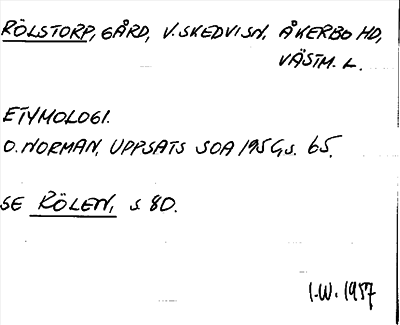 RÖLSTORP, GÅRD, V. SKEDVI SN, ÅKERBO HD,
VÄSTM. L.
ETYMOLOGI.
O. NORMAN, UPPSATS SOA 195G, s. 65.
SE RÖLEN, s 80.
I.W. 1957